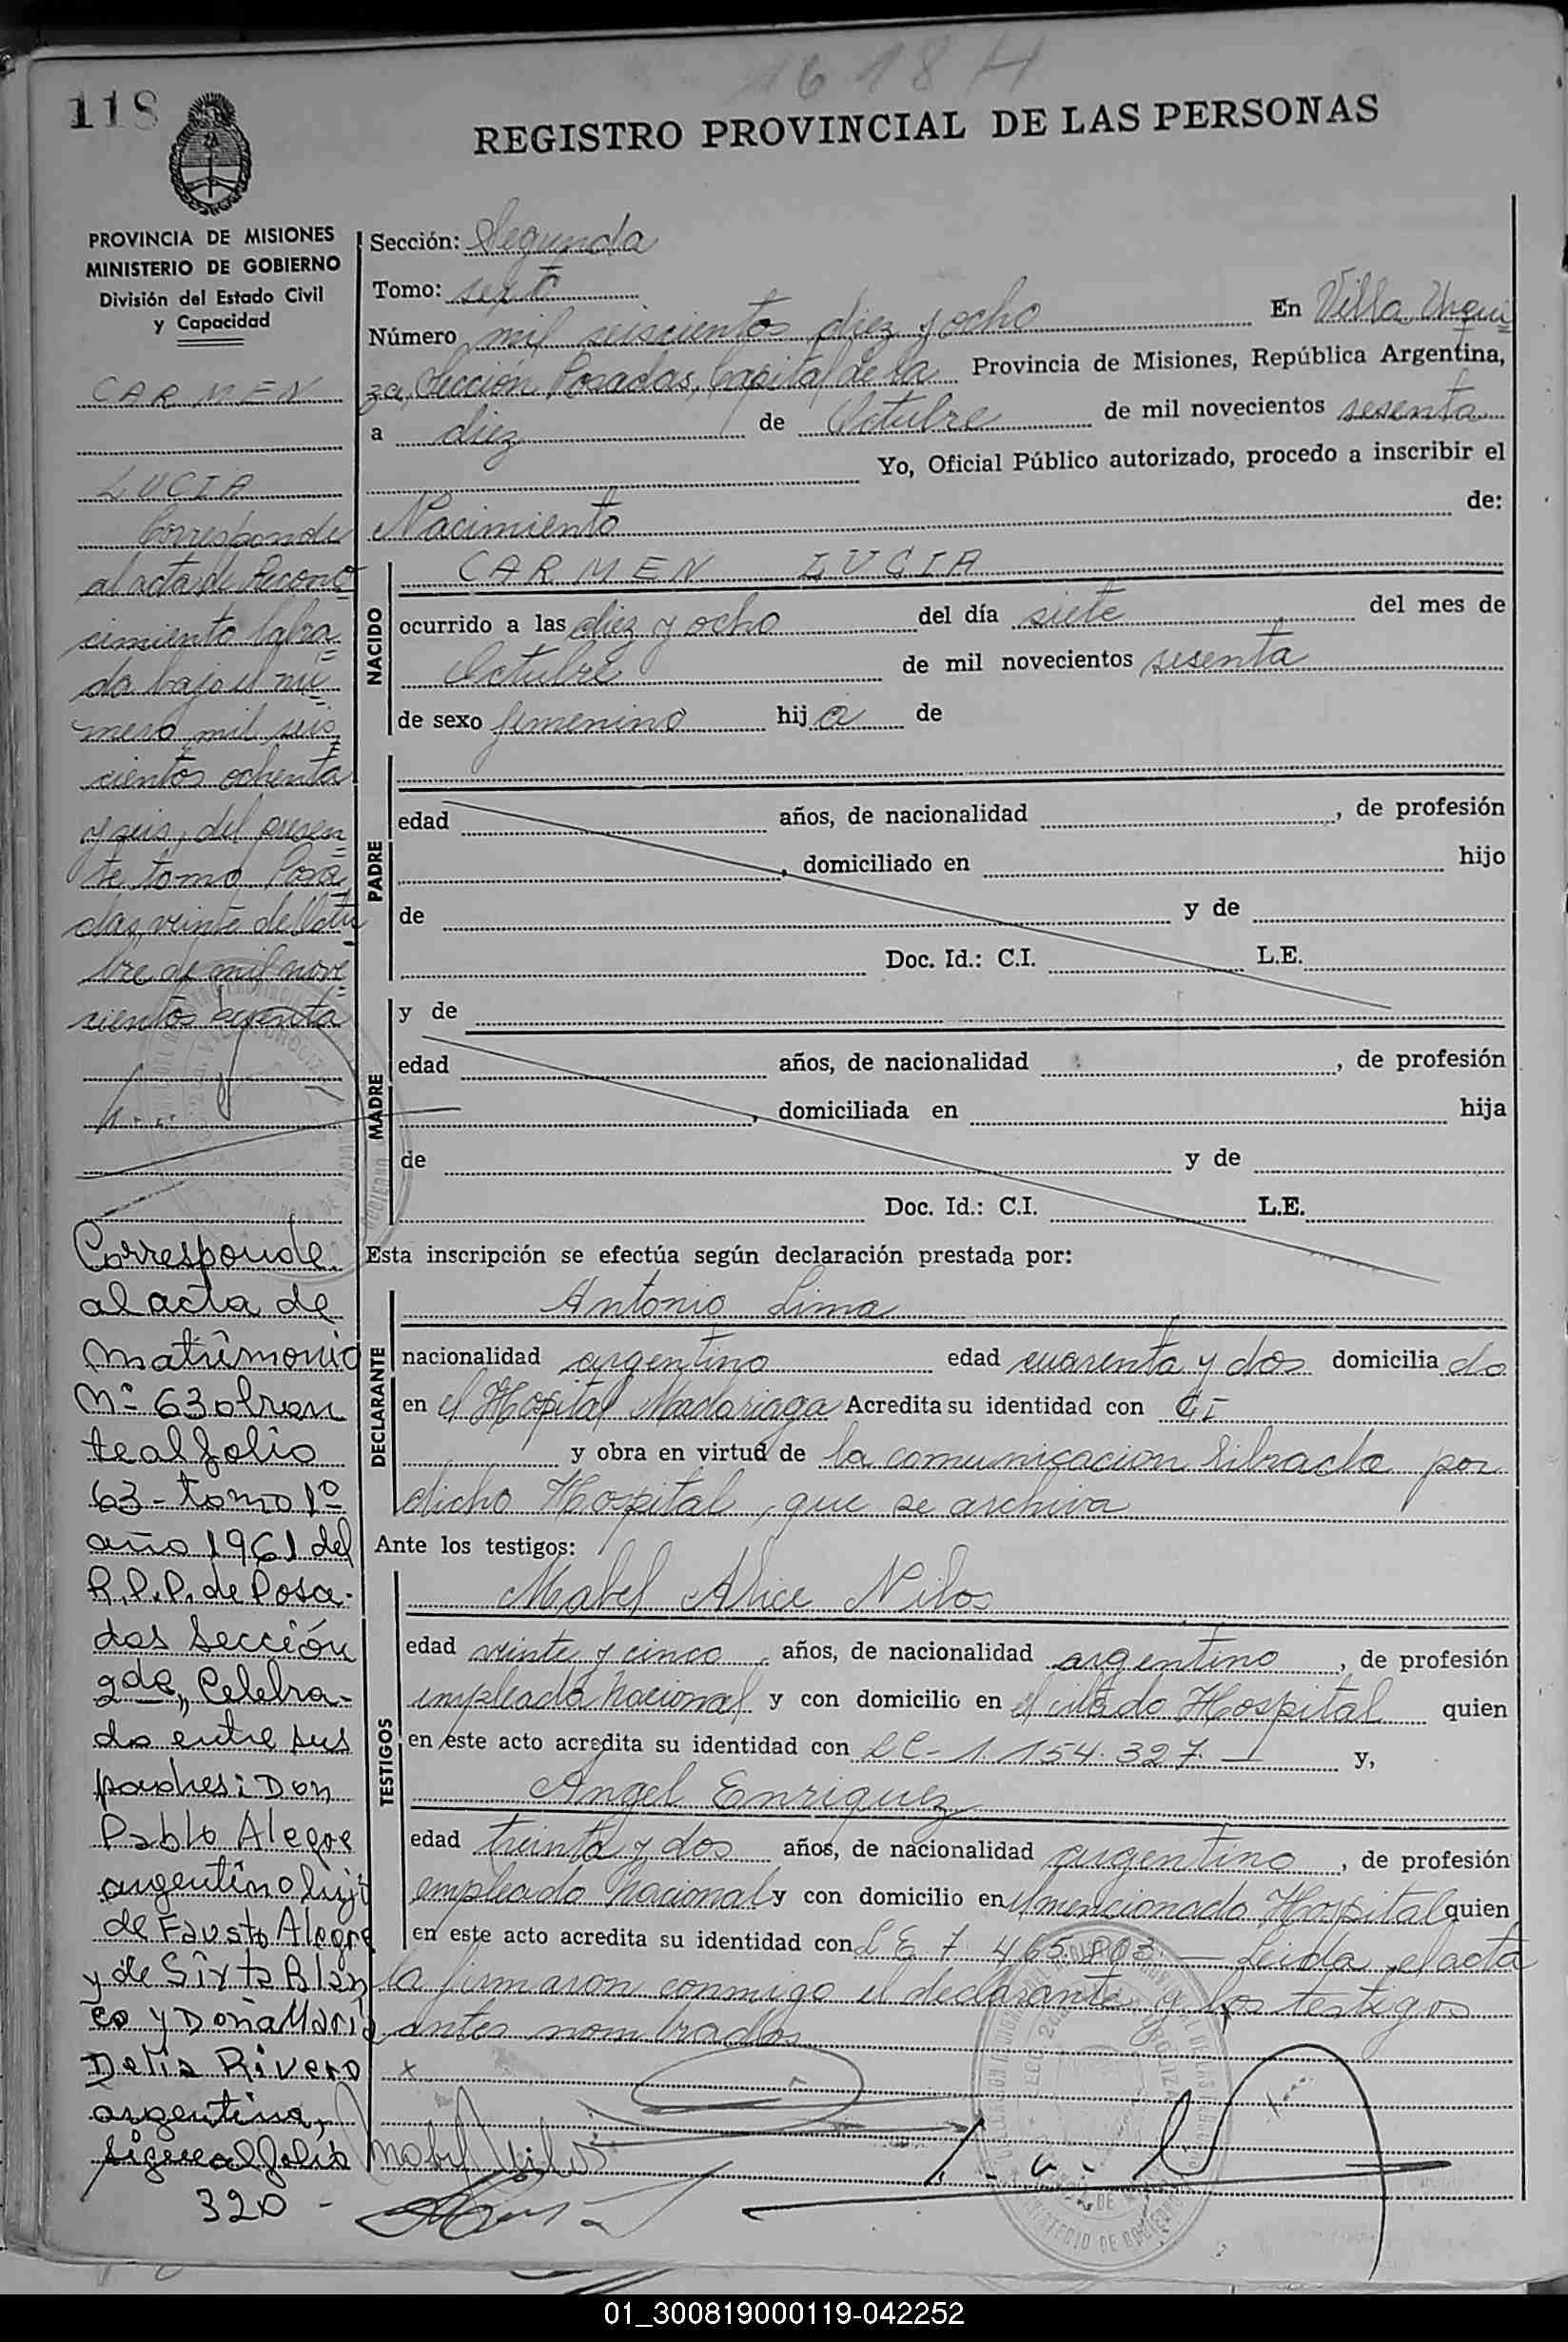 1618 H
118
REGISTRO PROVINCIAL DE LAS PERSONAS
PROVINCIA DE MISIONES
MINISTERIO DE GOBIERNO
División del Estado Civil
y Capacidad
CARMEN
LUCIA
Corresponde
al acta de Recono
cimiento labra
da bajo el nú
mero mil seis
cientos ochenta
y seis, del presen
te tomo Posa
das, veinte de Octu
bre de mil nove
cientos sesenta
Corresponde
al acta de
matrimonio
Nº 63 obran
te al folio
63 - tomo 1º
año 1961 del
R.P.P. de Posa-
das Sección
2da, Celebra-
do entre sus
padres: Don
Pablo Alegre
argentino hijo
de Fausto Alegre
y de Sixta Blan
co y Doña María
Delia Rivero
argentina,
sigue al folio
320 -
Sección: Segunda
Tomo: sexto
Número mil seiscientos diez y ocho En Villa Urqui
za, Sección, Posadas, Capital de la Provincia de Misiones, República Argentina,
a diez de Octubre de mil novecientos sesenta
Yo, Oficial Público autorizado, procedo a inscribir el
Nacimiento de:
NACIDO
CARMEN LUCIA
ocurrido a las diez y ocho del día siete del mes de
Octubre de mil novecientos sesenta
de sexo femenino hija de
PADRE
edad años, de nacionalidad , de profesión
, domiciliado en hijo
de y de
Doc. Id.: C.I. L.E.
MADRE
y de
edad años, de nacionalidad , de profesión
, domiciliada en hija
de y de
Doc. Id.: C.I. L.E.
Esta inscripción se efectúa según declaración prestada por:
DECLARANTE
Antonio Lima
nacionalidad argentino edad cuarenta y dos domiciliado
en el Hospital Madariaga Acredita su identidad con CI
y obra en virtud de la comunicacion librada por
dicho Hospital, que se archiva
Ante los testigos:
TESTIGOS
Mabel Alice Nilos
edad veinte y cinco, años, de nacionalidad argentino, de profesión
empleada nacional y con domicilio en el citado Hospital quien
en este acto acredita su identidad con LC - 1.154.327. y,
Angel Enriquez
edad treinta y dos años, de nacionalidad argentino, de profesión
empleado nacional y con domicilio en el mencionado Hospital quien
en este acto acredita su identidad con LE 7.465.003 - Leida el acta
la firmaron conmigo el declarante y los testigos
antes nombrados
x
Mabel Nilos
01_300819000119-042252